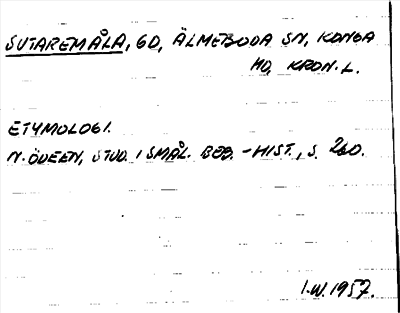 SUTAREMÅLA, GD, ÄLMEBODA SN, KONGA
HD, KRON. L.
ETYMOLOGI.
N. ÖDEEN, STUD. I SMÅL. BEB.-HIST., S. 260.
I.W. 1957.